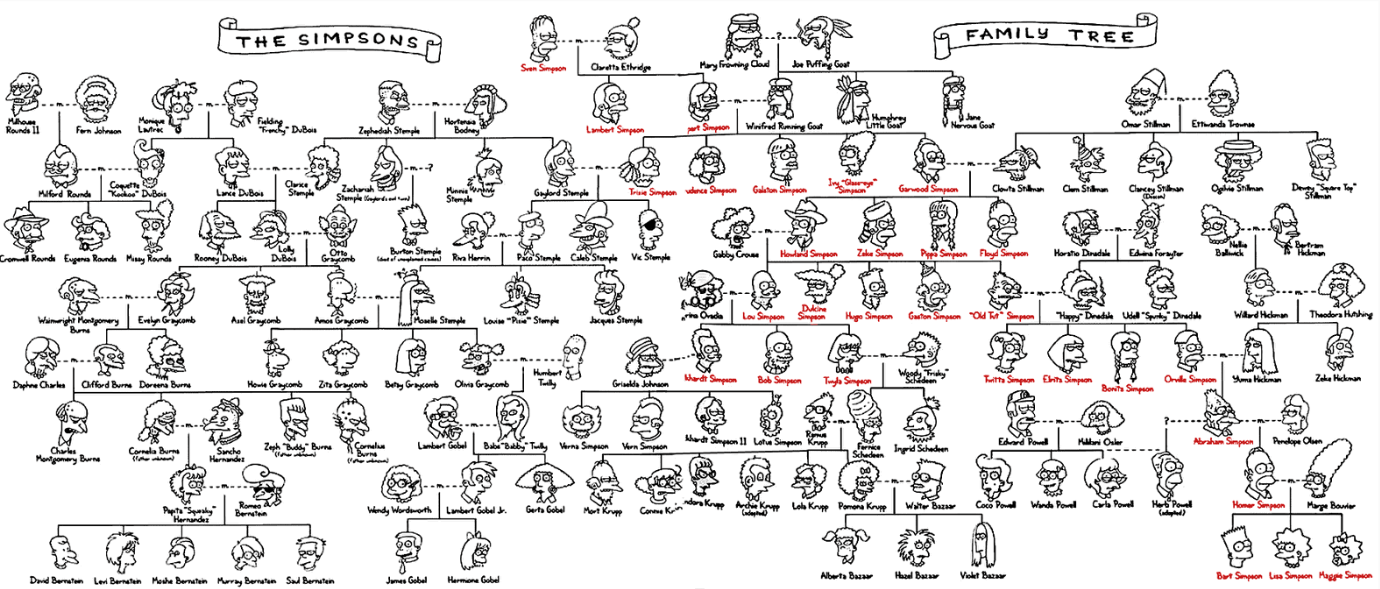 THE SIMPSONS
FAMILY TREE
Sven Simpson
Claretta Ethridge
Mary Frowning Cloud
?
Joe Puffing Goat
Milhouse
Rounds II
Fern Johnson
Monique
Lautrec
Fielding
"Frenchy" DuBois
Zephediah Stemple
Hortensia
Bodney
Lambert Simpson
Simpson
Winifred Running Goat
Humphrey
Little Goat
Jane
Nervous Goat
Omar Stillman
Ettwanda Trownse
Milford Rounds
Coquette
"Kookoo" DuBois
Lance DuBois
Clarice
Stemple
Zachariah
Stemple
?
Minnie
Stemple
Gaylord Stemple
Trixie Simpson
Simpson
Galston Simpson
Ivy "Glasseye"
Simpson
Garwood Simpson
Clowta Stillman
Clem Stillman
Clancey Stillman
Ogilvie Stillman
Dewey "Square Top"
Stillman
Cromwell Rounds
Eugenia Rounds
Missy Rounds
Rooney DuBois
Lolly
DuBois
Otto
Graycomb
Burton Stemple
Riva Herrin
Pico Stemple
Caleb Stemple
Vic Stemple
Gabby Crouse
Howland Simpson
Zeke Simpson
Pippa Simpson
Floyd Simpson
Horatio Dinsdale
Edwina Forayter
Nellie
Balliwick
Bertram
Hickman
Wainwright Montgomery
Burns
Evelyn Graycomb
Axel Graycomb
Amos Graycomb
Moselle Stemple
Louise "Pixie" Stemple
Jacques Stemple
Ovadia
Lou Simpson
Dulcine
Simpson
Hugo Simpson
Gaston Simpson
"Old Tut" Simpson
"Happy" Dinsdale
Udell "Spunky" Dinsdale
Willard Hickman
Theodora Hutshing
Daphne Charles
Clifford Burns
Doreena Burns
Howie Graycomb
Zita Graycomb
Betsy Graycomb
Olivia Graycomb
Humbert
Twilly
Griselda Johnson
Simpson
Bob Simpson
Twyla Simpson
Woody "Frisky"
Schedeen
Twitta Simpson
Elvita Simpson
Bonita Simpson
Orville Simpson
Yuma Hickman
Zeke Hickman
Charles
Montgomery Burns
Cornelia Burns
(father unknown)
Sancho
Hernandez
Zeph "Buddy" Burns
(father unknown)
Cornelius
Burns
(father unknown)
Lambert Gobel
Babs "Babby" Twilly
Verna Simpson
Vern Simpson
Simpson II
Lotus Simpson
Remus
Krupp
Fernice
Schedeen
Ingrid Schedeen
Edward Powell
Mililani Osler
?
Abraham Simpson
Penelope Olsen
Pepita "Squeaky"
Hernandez
Romeo
Bernstein
Wendy Wordsworth
Lambert Gobel Jr.
Gerta Gobel
Mort Krupp
Connie
Krupp
Archie Krupp
(adopted)
Lola Krupp
Pomona Krupp
Walter Bazaar
Coco Powell
Wanda Powell
Carla Powell
Herb Powell
(adopted)
Homer Simpson
Marge Bouvier
David Bernstein
Levi Bernstein
Moshe Bernstein
Murray Bernstein
Saul Bernstein
James Gobel
Hermione Gobel
Alberta Bazaar
Hazel Bazaar
Violet Bazaar
Bart Simpson
Lisa Simpson
Maggie Simpson